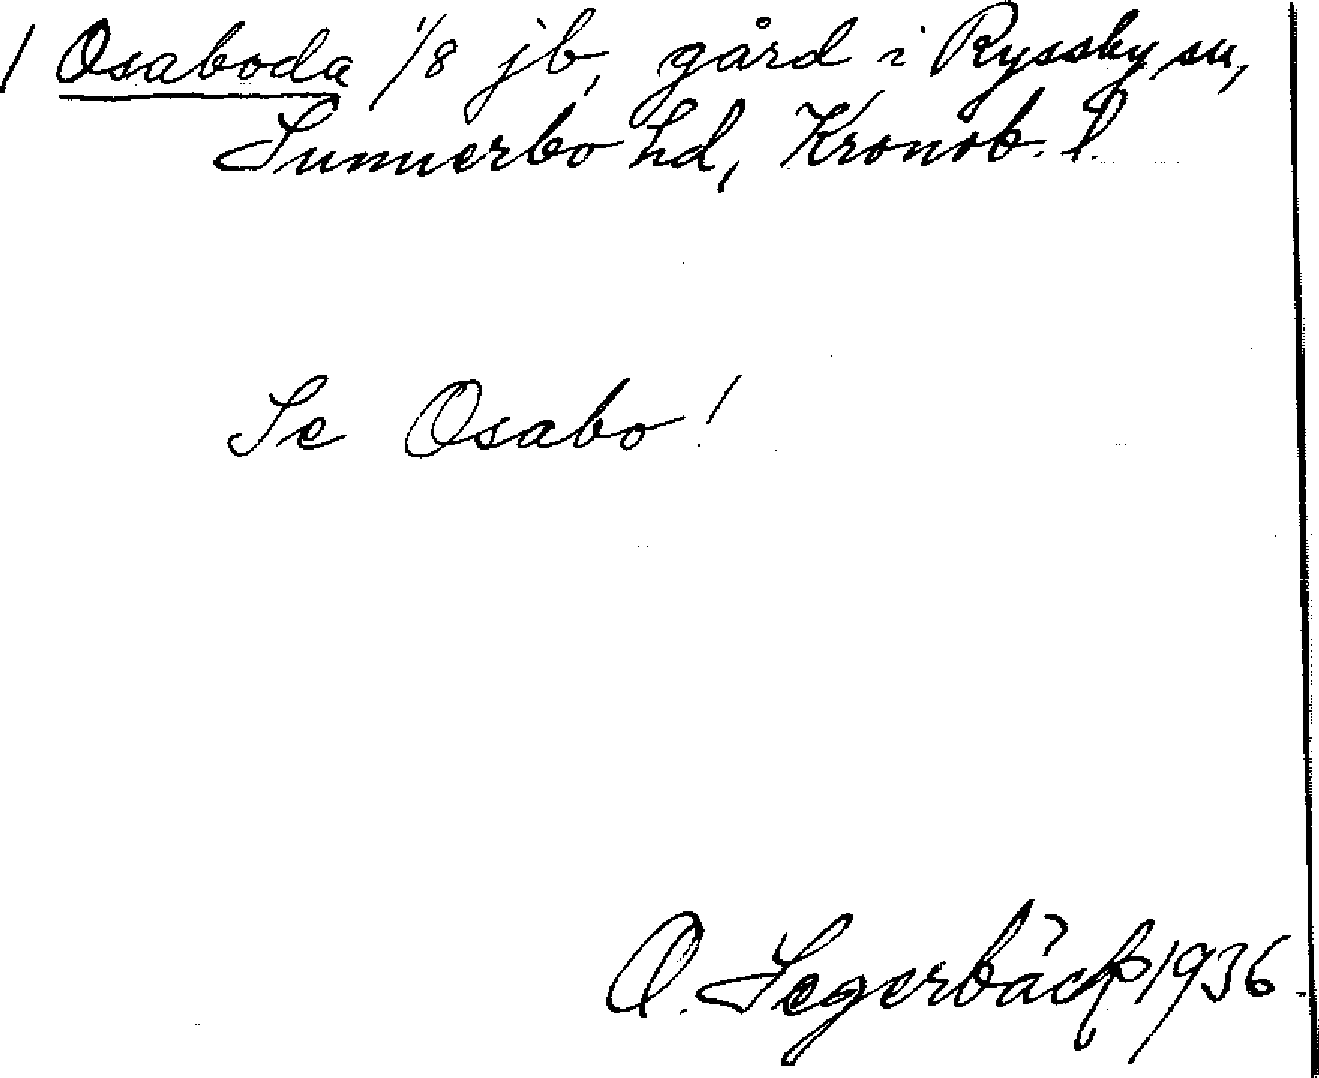 / Osaboda 1/8 jb, gård i Ryssby sn,
Sunnerbo hd, Kronob. l.
Se Osabo!
O. Segerbäck 1936